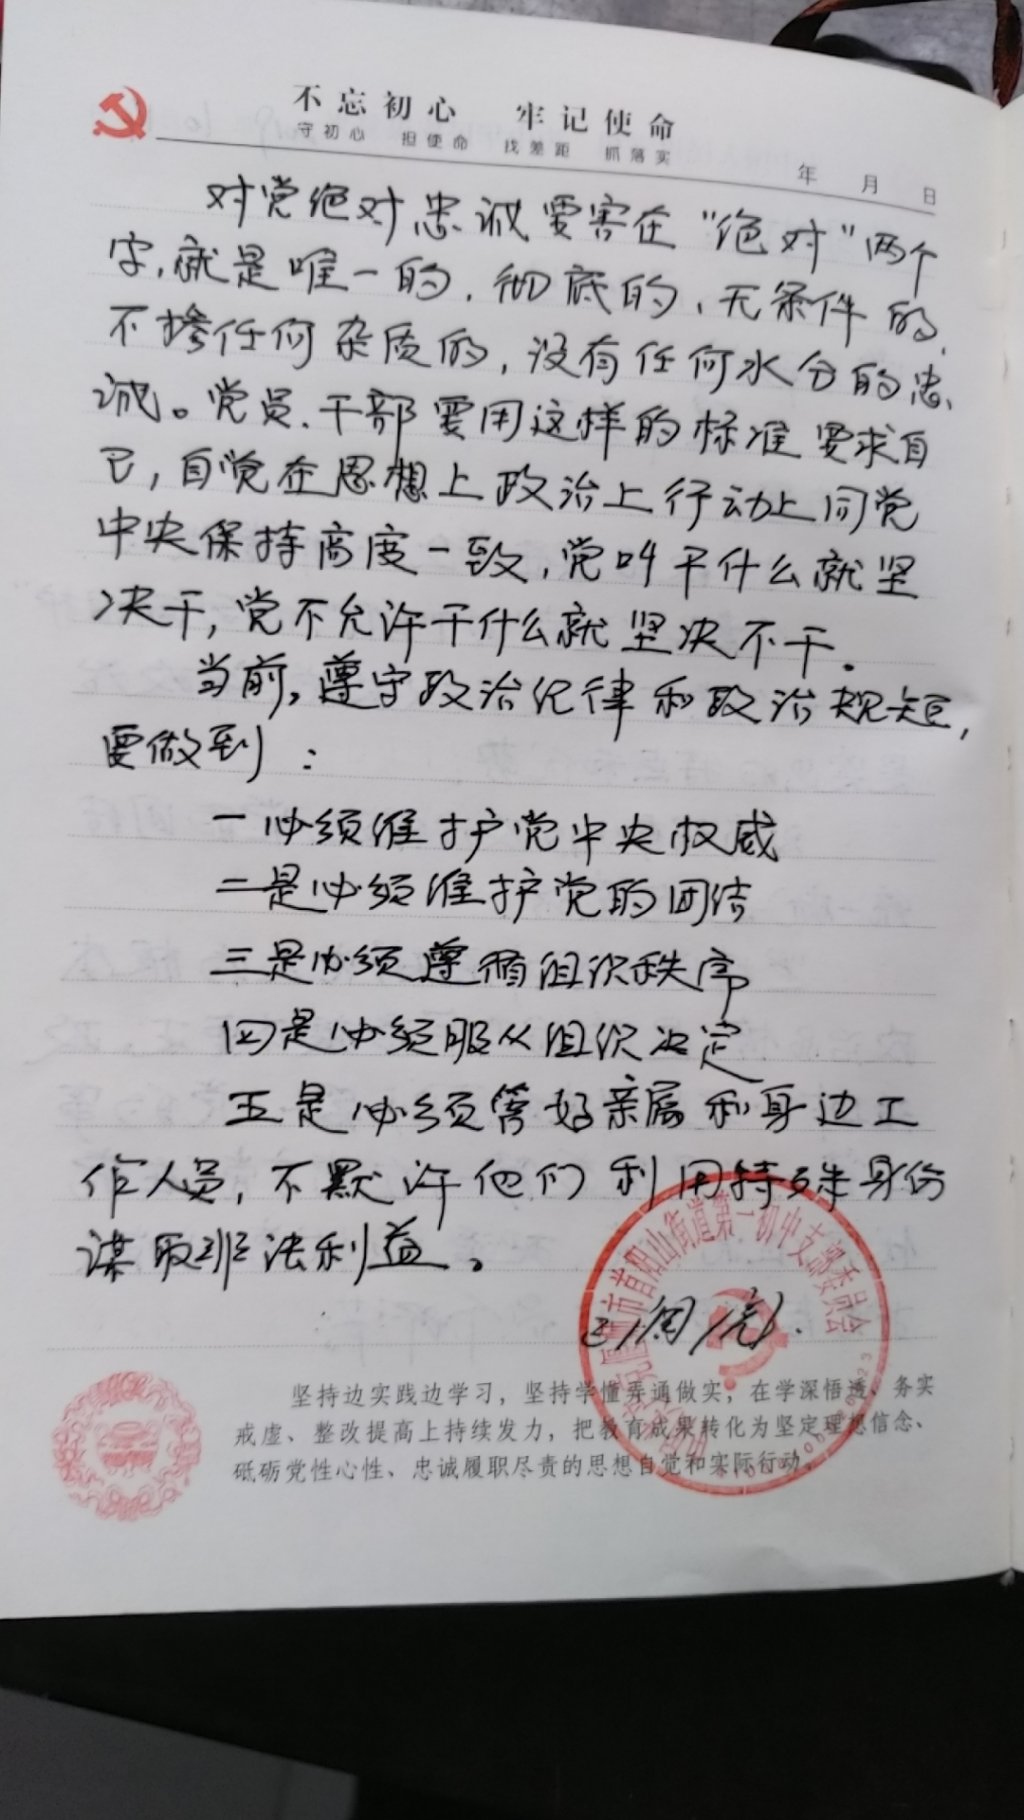 不忘初心 牢记使命
守初心 担使命 找差距 抓落实
年 月 日
对党绝对忠诚要害在“绝对”两个
字,就是唯一的,彻底的,无条件的,
不掺任何杂质的,没有任何水分的忠
诚。党员、干部要用这样的标准要求自
己,自觉在思想上政治上行动上同党
中央保持高度一致,党叫干什么就坚
决干,党不允许干什么就坚决不干。
当前,遵守政治纪律和政治规矩,
要做到:
一必须维护党中央权威
二是必须维护党的团结
三是必须遵循组织秩序
四是必须服从组织决定
五是必须管好亲属和身边工
作人员,不默许他们利用特殊身份
谋取非法利益。
市首阳山街道第一初中支部委员会
已阅
坚持边实践边学习,坚持学懂弄通做实,在学深悟透、务实
戒虚、整改提高上持续发力,把教育成果转化为坚定理想信念、
砥砺党性心性、忠诚履职尽责的思想自觉和实际行动。